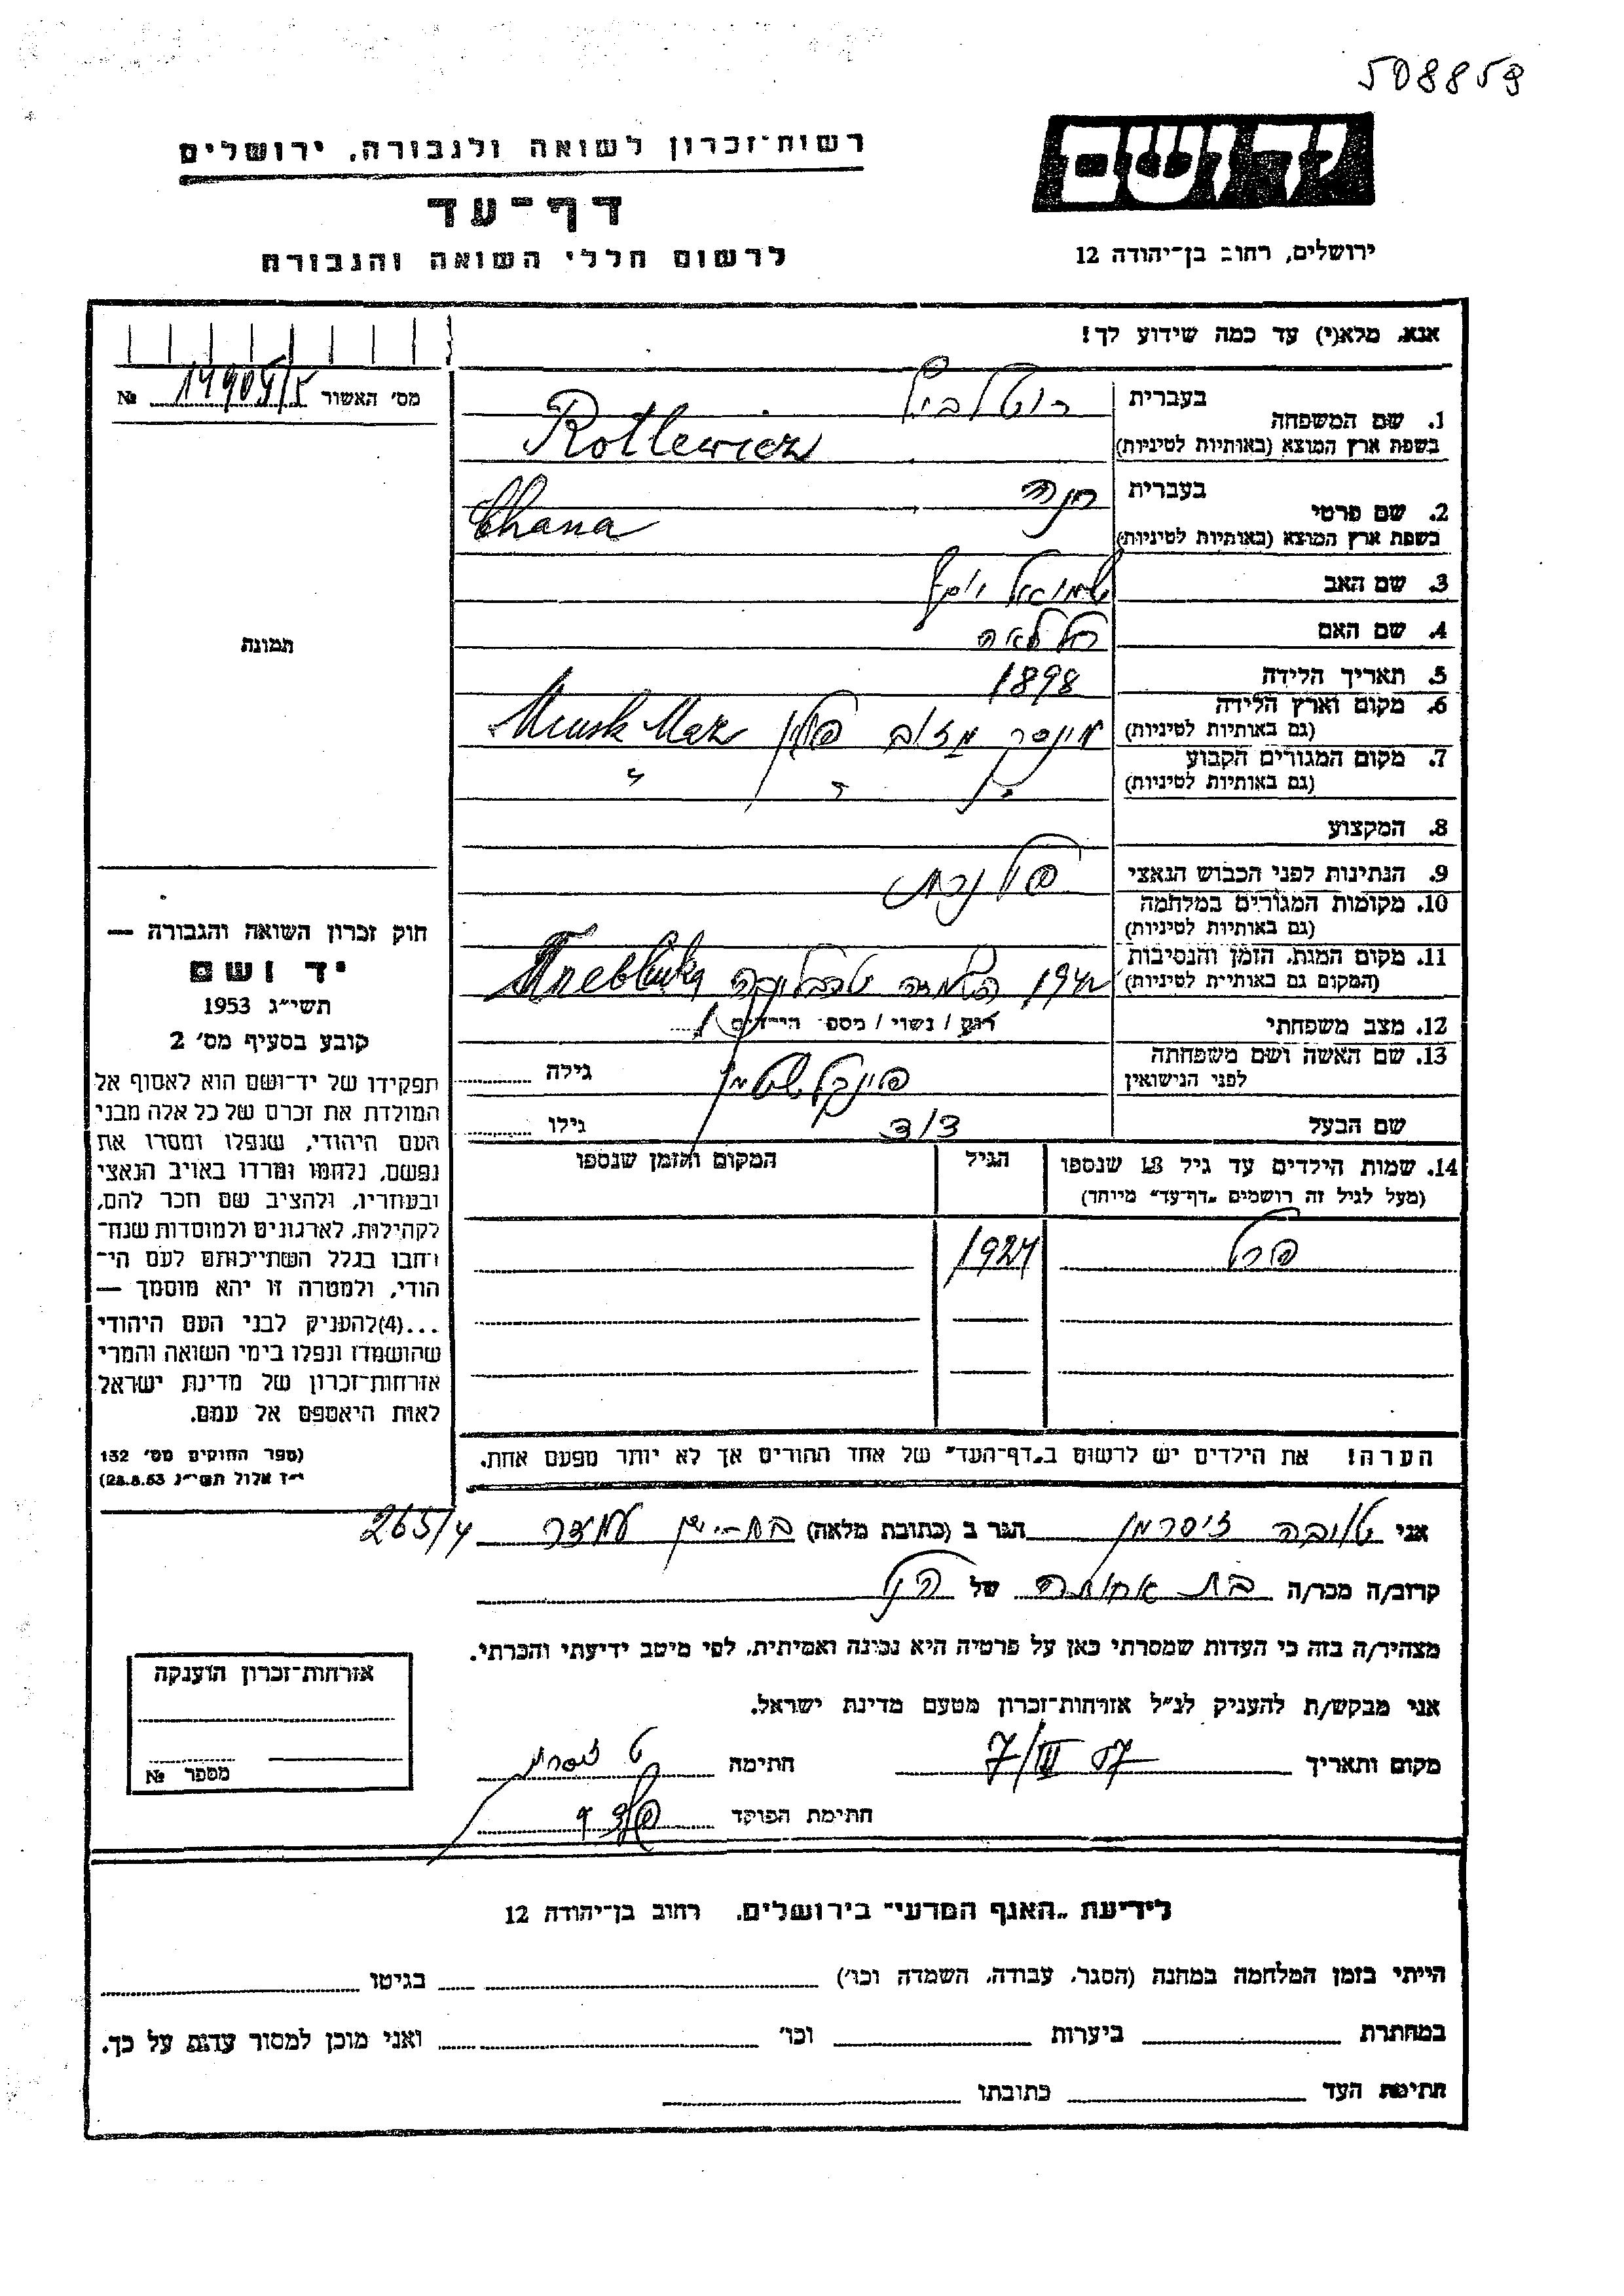 508859
יד ושם
רשות־זכרון לשואה ולגבורה, ירושלים
דף־עד
לרשום חללי השואה והגבורה
ירושלים, רחוב בן־יהודה 12
אנא, מלא(י) עד כמה שידוע לך!
מס׳ האשור №
1. שם המשפחה בעברית רוטלביץ
בשפת ארץ המוצא (באותיות לטיניות) Rotlewicz
2. שם פרטי בעברית חנה
בשפת ארץ המוצא (באותיות לטיניות) Chana
3. שם האב שמואל יוסף
4. שם האם רחל לאה
5. תאריך הלידה 1898
6. מקום וארץ הלידה (גם באותיות לטיניות) מינסק מזוב פולין Minsk Maz
7. מקום המגורים הקבוע (גם באותיות לטיניות) " " "
8. המקצוע
9. הנתינות לפני הכבוש הנאצי פולנית
10. מקומות המגורים במלחמה (גם באותיות לטיניות)
11. מקום המות, הזמן והנסיבות (המקום גם באותיות לטיניות) 1942 טרבלינקה Treblinka
12. מצב משפחתי רוק / נשוי / מספר הילדים 1
13. שם האשה ושם משפחתה לפני הנישואין פינקלשטיין גילה
שם הבעל דוד גילו
14. שמות הילדים עד גיל 18 שנספו (מעל לגיל זה רושמים „דף־עד״ מיוחד) הגיל המקום והזמן שנספו
פרל 1927
הערה! את הילדים יש לרשום ב„דף־העד״ של אחד ההורים אך לא יותר מפעם אחת.
תמונה
חוק זכרון השואה והגבורה —
יד ושם
תשי״ג 1953
קובע בסעיף מס׳ 2
תפקידו של יד־ושם הוא לאסוף אל
המולדת את זכרם של כל אלה מבני
העם היהודי, שנפלו ומסרו את
נפשם, נלחמו ומרדו באויב הנאצי
ובעוזריו, ולהציב שם וזכר להם,
לקהילות, לארגונים ולמוסדות שנח־
רבו בגלל השתייכותם לעם הי־
הודי, ולמטרה זו יהא מוסמך —
...(4)להעניק לבני העם היהודי
שהושמדו ונפלו בימי השואה והמרי
אזרחות־זכרון של מדינת ישראל
לאות היאספם אל עמם.
(ספר החוקים מס׳ 132
י״ז אלול תשי״ג 28.8.53)
אני טובה זיסרמן הגר ב (כתובת מלאה) בת-ים 265/4
קרוב/ה מכר/ה בת אחותה של הנ״ל
מצהיר/ה בזה כי העדות שמסרתי כאן על פרטיה היא נכונה ואמיתית, לפי מיטב ידיעתי והכרתי.
אני מבקש/ת להעניק לנ״ל אזרחות־זכרון מטעם מדינת ישראל.
מקום ותאריך 7/III 57 חתימה ט זיסרמן
חתימת הפוקד
אזרחות־זכרון הוענקה
מספר №
לידיעת „האגף המדעי״ בירושלים, רחוב בן־יהודה 12
הייתי בזמן המלחמה במחנה (הסגר, עבודה, השמדה וכו׳) בגיטו
במחתרת ביערות וכו׳ ואני מוכן למסור עדות על כך.
חתימת העד כתובתו